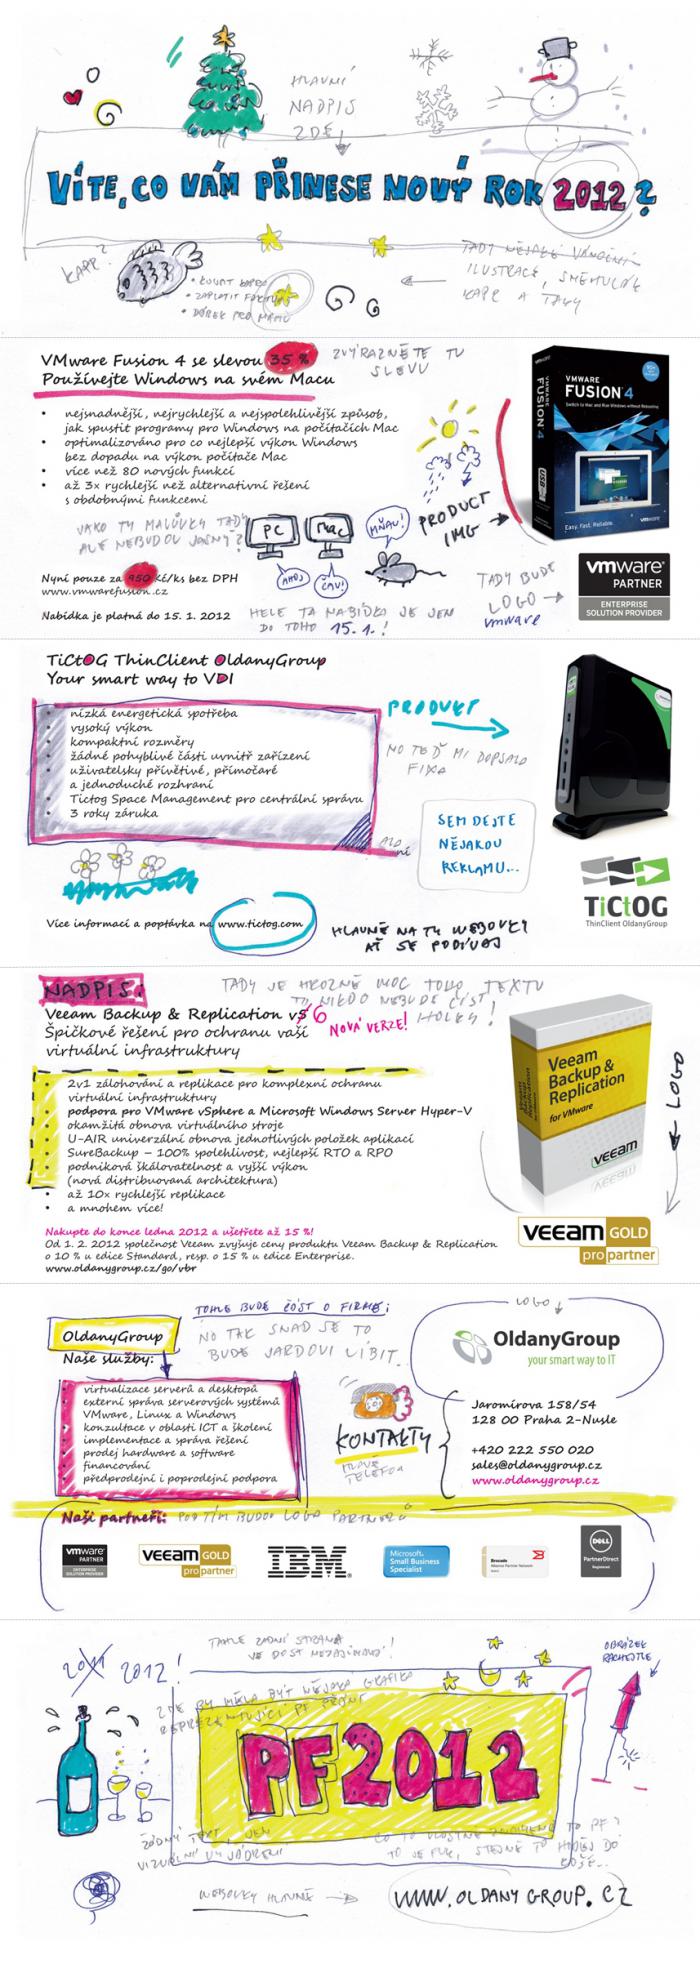 HLAVNÍ
NADPIS
ZDE
VÍTE, CO VÁM PŘINESE NOVÝ ROK 2012?
KAPR?
• KOUPIT KAPRA
• ZAPLATIT FAKTURU
• DÁREK PRO MÁMU
TADY NĚJAKÉ VÁNOČNÍ
ILUSTRACE, SNĚHULÁK
KAPR A TAKY
VMware Fusion 4 se slevou 35 %
Používejte Windows na svém Macu
ZVÝRAZNĚTE TU
SLEVU
• nejsnadnější, nejrychlejší a nejspolehlivější způsob,
jak spustit programy pro Windows na počítačích Mac
• optimalizováno pro co nejlepší výkon Windows
bez dopadu na výkon počítače Mac
• více než 80 nových funkcí
• až 3x rychlejší než alternativní řešení
s obdobnými funkcemi
VMWARE
FUSION 4
Switch to Mac and Run Windows without Rebooting
FUSION 4
Easy. Fast. Reliable.
vmware
PRODUCT
IMG
JAKO TY MALŮVKY TADY
ALE NEBUDOU JASNÝ?
PC
Mac
MŇAU!
AHOJ
ČAU!
Nyní pouze za 950 Kč/ks bez DPH
www.vmwarefusion.cz
Nabídka je platná do 15. 1. 2012
HELE TA NABÍDKA JE JEN
DO TOHO 15.1.!
TADY BUDE
LOGO
vmware
vmware
PARTNER
ENTERPRISE
SOLUTION PROVIDER
TiCtOG ThinClient OldanyGroup
Your smart way to VDI
• nízká energetická spotřeba
• vysoký výkon
• kompaktní rozměry
• žádné pohyblivé části uvnitř zařízení
• uživatelsky přívětivé, přímočaré
a jednoduché rozhraní
• Tictog Space Management pro centrální správu
• 3 roky záruka
PRODUKT
NO TEĎ MI DOPSALA
FIXA
SEM DEJTE
NĚJAKOU
REKLAMU...
TiCtOG
ThinClient OldanyGroup
Více informací a poptávka na www.tictog.com
HLAVNĚ NA TY WEBOVKY
AŤ SE PODÍVAJ
NADPIS:
TADY JE HROZNĚ MOC TOHO TEXTU
TO NIKDO NEBUDE ČÍST
HOLKY!
Veeam Backup & Replication v5 6
NOVÁ VERZE!
Špičkové řešení pro ochranu vaší
virtuální infrastruktury
• 2v1 zálohování a replikace pro komplexní ochranu
virtuální infrastruktury
• podpora pro VMware vSphere a Microsoft Windows Server Hyper-V
• okamžitá obnova virtuálního stroje
• U-AIR univerzální obnova jednotlivých položek aplikací
• SureBackup – 100% spolehlivost, nejlepší RTO a RPO
• podniková škálovatelnost a vyšší výkon
(nová distribuovaná architektura)
• až 10x rychlejší replikace
• a mnohem více!
Veeam
Backup &
Replication
Veeam
Backup &
Replication
for VMware
veeam
LOGO
Nakupte do konce ledna 2012 a ušetřete až 15 %!
Od 1. 2. 2012 společnost Veeam zvyšuje ceny produktu Veeam Backup & Replication
o 10 % u edice Standard, resp. o 15 % u edice Enterprise.
www.oldanygroup.cz/go/vbr
veeam GOLD
pro partner
TOHLE BUDE ČÁST O FIRMĚ:
LOGO
OldanyGroup
Naše služby:
NO TAK SNAD SE TO
BUDE JARDOVI LÍBIT.
OldanyGroup
your smart way to IT
• virtualizace serverů a desktopů
• externí správa serverových systémů
VMware, Linux a Windows
• konzultace v oblasti ICT a školení
• implementace a správa řešení
• prodej hardware a software
• financování
• předprodejní i poprodejní podpora
KONTAKTY
HLAVNĚ
TELEFON
Jaromírova 158/54
128 00 Praha 2-Nusle
+420 222 550 020
sales@oldanygroup.cz
www.oldanygroup.cz
Naši partneři:
POD TÍM BUDOU LOGA PARTNERŮ
vmware
PARTNER
ENTERPRISE
SOLUTION PROVIDER
veeam GOLD
pro partner
IBM
Microsoft
Small Business
Specialist
Brocade
Alliance Partner Network
DELL
PartnerDirect
Registered
TAHLE ZADNÍ STRANA
JE DOST NEZAJÍMAVÁ!
2011 2012!
ZDE BY MĚLA BÝT NĚJAKÁ GRAFIKA
REPREZENTUJÍCÍ PF PŘÁNÍ
OBRÁZEK
RACHEJTLE
PF2012
ŽÁDNÝ TEXT, JEN
VIZUÁLNÍ VYJÁDŘENÍ
CO TO VLASTNĚ ZNAMENÁ TO PF?
TO JE FUK, STEJNĚ TO HODĚJ DO
KOŠE...
WEBOVKY HLAVNĚ
WWW.OLDANYGROUP.CZ